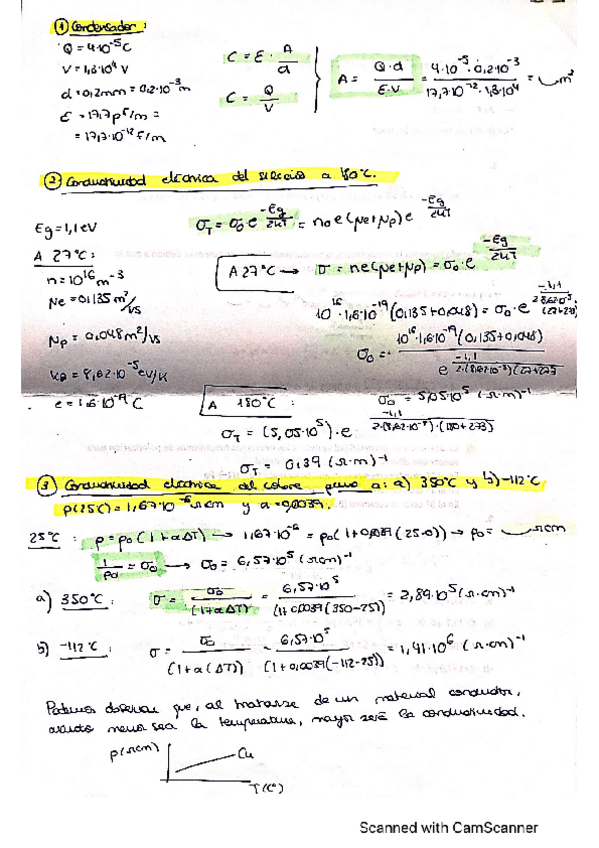 ① Condensador:
Q = 4·10⁻⁵ C
V = 1,8·10⁴ V
d = 0,2 mm = 0,2·10⁻³ m
ε = 17,7 pF/m =
= 17,7·10⁻¹² F/m
C = ε · A/d
C = Q/V
A = Q·d / ε·V = 4·10⁻⁵ · 0,2·10⁻³ / 17,7·10⁻¹² · 1,8·10⁴ = m²
② Conductividad eléctrica del silicio a 180°C.
Eg = 1,1 eV
σT = σ0 · e^(-Eg/2kT) = n0 e (μe+μp) e^(-Eg/2kT)
A 27°C:
n = 10¹⁶ m⁻³
A 27°C → σ = n e (μe+μp) = σ0 e^(-Eg/2kT)
μe = 0,135 m²/Vs
10¹⁶ · 1,6·10⁻¹⁹ (0,135+0,048) = σ0 · e^(-1,1/2·8,62·10⁻⁵·(27+273))
μp = 0,048 m²/Vs
σ0 = 10¹⁶ · 1,6·10⁻¹⁹ (0,135+0,048) / e^(-1,1/2·(8,62·10⁻⁵)(27+273))
kB = 8,62·10⁻⁵ eV/K
e = 1,6·10⁻¹⁹ C
A 180°C:
σ0 = 5,05·10⁵ (Ω·m)⁻¹
σT = (5,05·10⁵) · e^(-1,1/2·(8,62·10⁻⁵)·(180+273))
σT = 0,39 (Ω·m)⁻¹
③ Conductividad eléctrica del cobre puro a: a) 350°C y b) -112°C
ρ(25C) = 1,67·10⁻⁶ Ωcm y α = 0,0039.
25°C: ρ = ρ0 (1+αΔT) → 1,67·10⁻⁶ = ρ0 (1+0,0039(25-0)) → ρ0 = Ωcm
1/ρ0 = σ0 → σ0 = 6,57·10⁵ (Ωcm)⁻¹
a) 350°C: σ = σ0 / (1+αΔT) = 6,57·10⁵ / (1+0,0039(350-25)) = 2,89·10⁵ (Ω·cm)⁻¹
b) -112°C: σ = σ0 / (1+α(ΔT)) = 6,57·10⁵ / (1+0,0039(-112-25)) = 1,41·10⁶ (Ω·cm)⁻¹
Podemos observar que, al tratarse de un material conductor,
cuanto menor sea la temperatura, mayor será la conductividad.
ρ(Ωcm)
Cu
T(C°)
Scanned with CamScanner